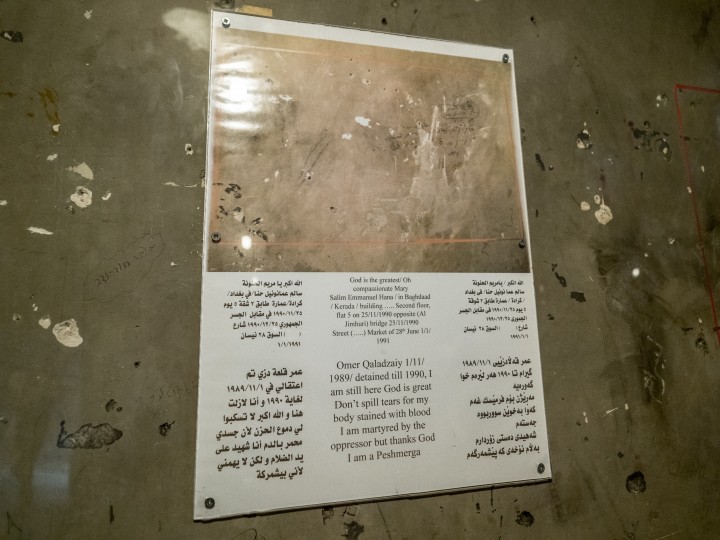 الله اكبر يا مريم الحنونة
سالم عمانوئيل حنا/ في بغداد/
كرادة/عمارة طابق ٢ شقة ٥ يوم
١٩٩٠/١١/٢٥ في مقابل الجسر
الجمهوري ١٩٩٠/١٢/٢٥ شارع
( ) السوق ٢٨ نيسان
١/١/١٩٩١
عمر قلعة دزي تم
اعتقالي في ١٩٨٩/١١/١
لغاية ١٩٩٠ و أنا لازلت
هنا و الله اكبر لا تسكبوا
لي دموع الحزن لأن جسدي
محمر بالدم أنا شهيد على
يد الضلام و لكن لا يهمني
لأني بيشمركة
God is the greatest/ Oh
compassionate Mary
Salim Emmanuel Hana / in Baghdaad
/ Kerada / building ..... Second floor,
flat 5 on 25/11/1990 opposite (Al
Jimhuri) bridge 25/11/1990
Street (.....) Market of 28th June 1/1/
1991
Omer Qaladzaiy 1/11/
1989/ detained till 1990, I
am still here God is great
Don't spill tears for my
body stained with blood
I am martyred by the
oppressor but thanks God
I am a Peshmerga
الله اكبر / يامريم الحنونة
سالم عمانوئيل حنا/ في بغداد
/ كرادة / عمارة طابق ٢ شوقة
٥ يوم ١٩٩٠/١١/٢٥ في مقابل الجسر
الجموري ١٩٩٠/١٢/٢٥
شارع( ) السوق ٢٨ نيسان
١٩٩١/١/١
عمر قەڵادزێیی ١٩٨٩/١١/١
گیرام تا ١٩٩٠ هەر لێرەم خوا
گەورەیە
مەڕێژن بۆم فرمێسك غەم
کەوا بەخوێن سووربووە
جەستەم
شەهیدی دەستی زۆردارم
بەڵام نۆخەی کە پێشمەرگەم